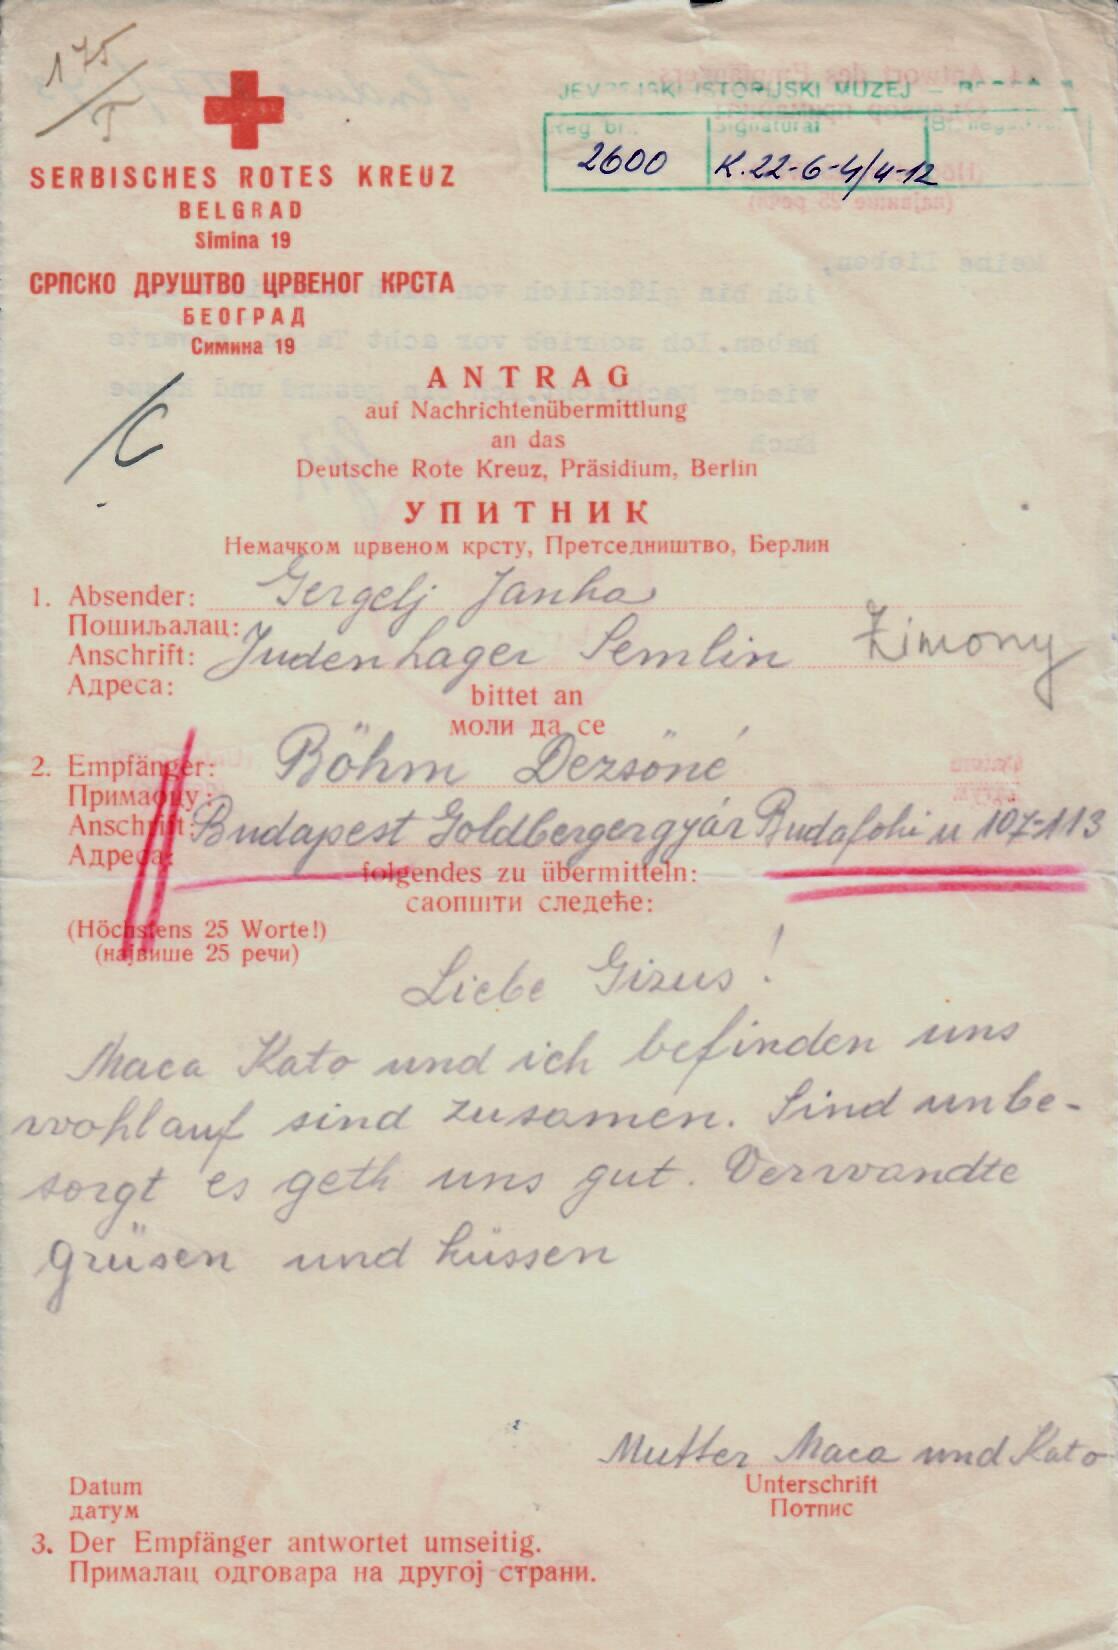 175
I
JEVREJSKI ISTORIJSKI MUZEJ –
Reg br.: Signatura:
2600 K. 22-6-4/4-12
SERBISCHES ROTES KREUZ
BELGRAD
Simina 19
СРПСКО ДРУШТВО ЦРВЕНОГ КРСТА
БЕОГРАД
Симина 19
ANTRAG
auf Nachrichtenübermittlung
an das
Deutsche Rote Kreuz, Präsidium, Berlin
C
УПИТНИК
Немачком црвеном крсту, Претседништво, Берлин
1. Absender: Gergelj Janka
Пошиљалац:
Anschrift: Judenlager Semlin Zimony
Адреса:
bittet an
моли да се
2. Empfänger: Böhm Dezsöné
Примаоцу:
Anschrift: Budapest Goldbergergyár Budafoki u 107-113
Адреса:
folgendes zu übermitteln:
саопшти следеће:
(Höchstens 25 Worte!)
(највише 25 речи)
Liebe Gizus!
Maca Kato und ich befinden uns
wohlauf sind zusamen. Sind unbe-
sorgt es geth uns gut. Verwandte
Grüsen und küssen
Mutter Maca und Kato
Datum Unterschrift
датум Потпис
3. Der Empfänger antwortet umseitig.
Прималац одговара на другој страни.